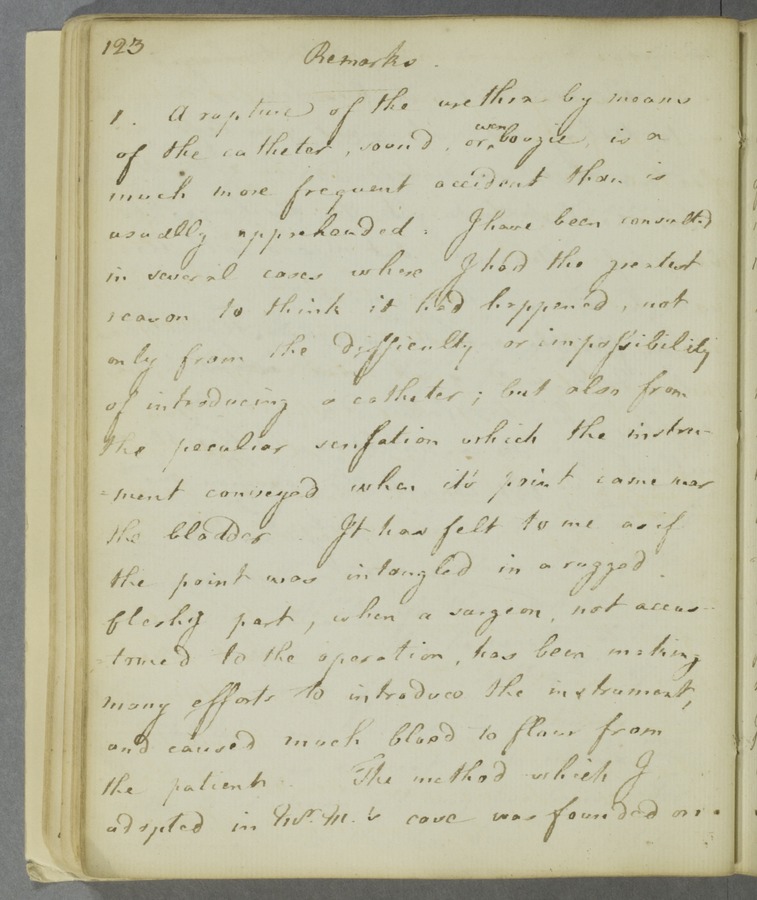 123
Remarks.
1. A rupture of the urethra by means
of the catheter, sound, or even bougie, is a
much more frequent accident than is
usually apprehended. I have been consulted
in several cases where I had the greatest
reason to think it had happened, not
only from the difficulty or impossibility
of introducing a catheter; but also from
the peculiar sensation which the instru-
-ment conveyed when it's point came near
the bladder. It has felt to me as if
the point was intangled in a rugged
fleshy part, when a surgeon, not accus-
-tomed to the operation, has been making
many efforts to introduce the instrument,
and caused much blood to flow from
the patient. The method which I
adopted in Mr. M.'s case was founded on